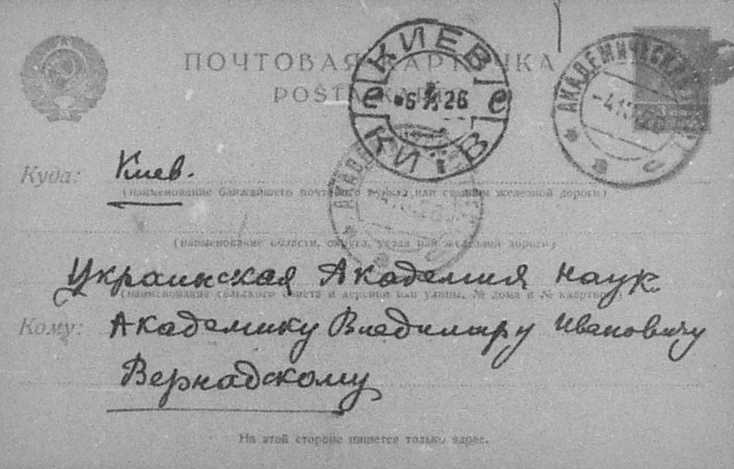 ПОЧТОВАЯ КАРТОЧКА
POSTA KARTO
КИЕВ
6 26
е е
КИЇВ
АКАДЕМИЧЕСКАЯ
-4.
Куда: Киев.
(наименование ближайшего почтового пункта или станции железной дороги)
(наименование области, округа, уезда или железной дороги)
Украинская Академия наук
(наименование сельского совета и деревни или улицы, № дома и № квартиры)
Кому: Академику Владимиру Ивановичу
Вернадскому
На этой стороне пишется только адрес.